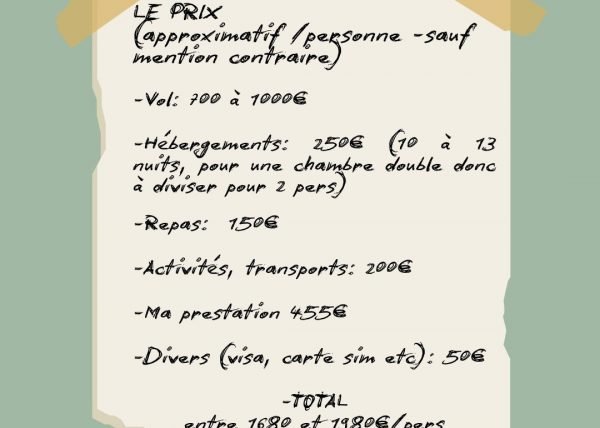 LE PRIX
(approximatif /personne -sauf
mention contraire)
-Vol: 700 à 1000€
-Hébergements: 250€ (10 à 13
nuits, pour une chambre double donc
à diviser pour 2 pers)
-Repas: 150€
-Activités, transports: 200€
-Ma prestation 455€
-Divers (visa, carte sim etc): 50€
-TOTAL
entre 1680 et 1980€/pers